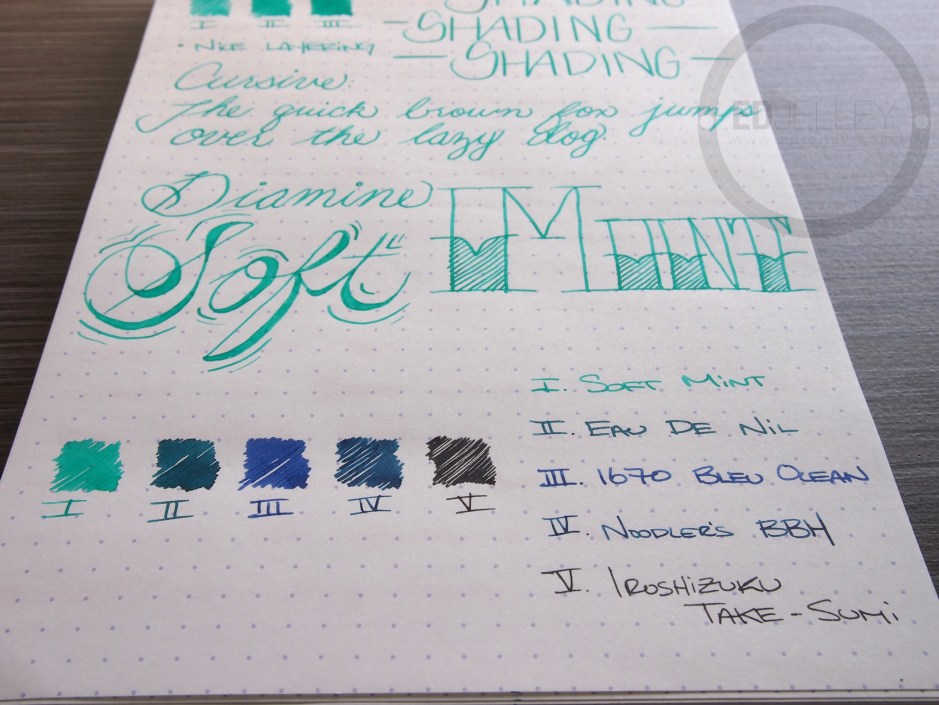 SHADING
I II III
-SHADING-
• NICE LAYERING
-SHADING-
Cursive:
The quick brown fox jumps
over the lazy dog.
ED JELLEY
Diamine
Soft MINT
I. SOFT MINT
II. EAU DE NIL
III. 1670 BLEU OCEAN
IV. NOODLER'S BBH
V. IROSHIZUKU
TAKE-SUMI
I II III IV V